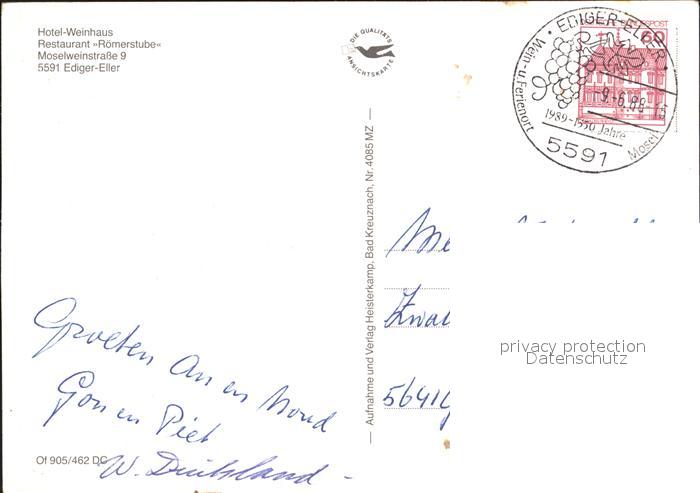 Hotel-Weinhaus
Restaurant »Römerstube«
Moselweinstraße 9
5591 Ediger-Eller
DIE QUALITÄTS
ANSICHTSKARTE
60
EDIGER-ELLER
Wein-u.Ferienort
-9.-6.88-15
1989-1350 Jahre
5591
Mosel
Aufnahme und Verlag Heisterkamp, Bad Kreuznach, Nr. 4085 MZ
5641
privacy protection
Datenschutz
Groeten An en
Gon en Piet
W. Duitsland -
Of 905/462 DC